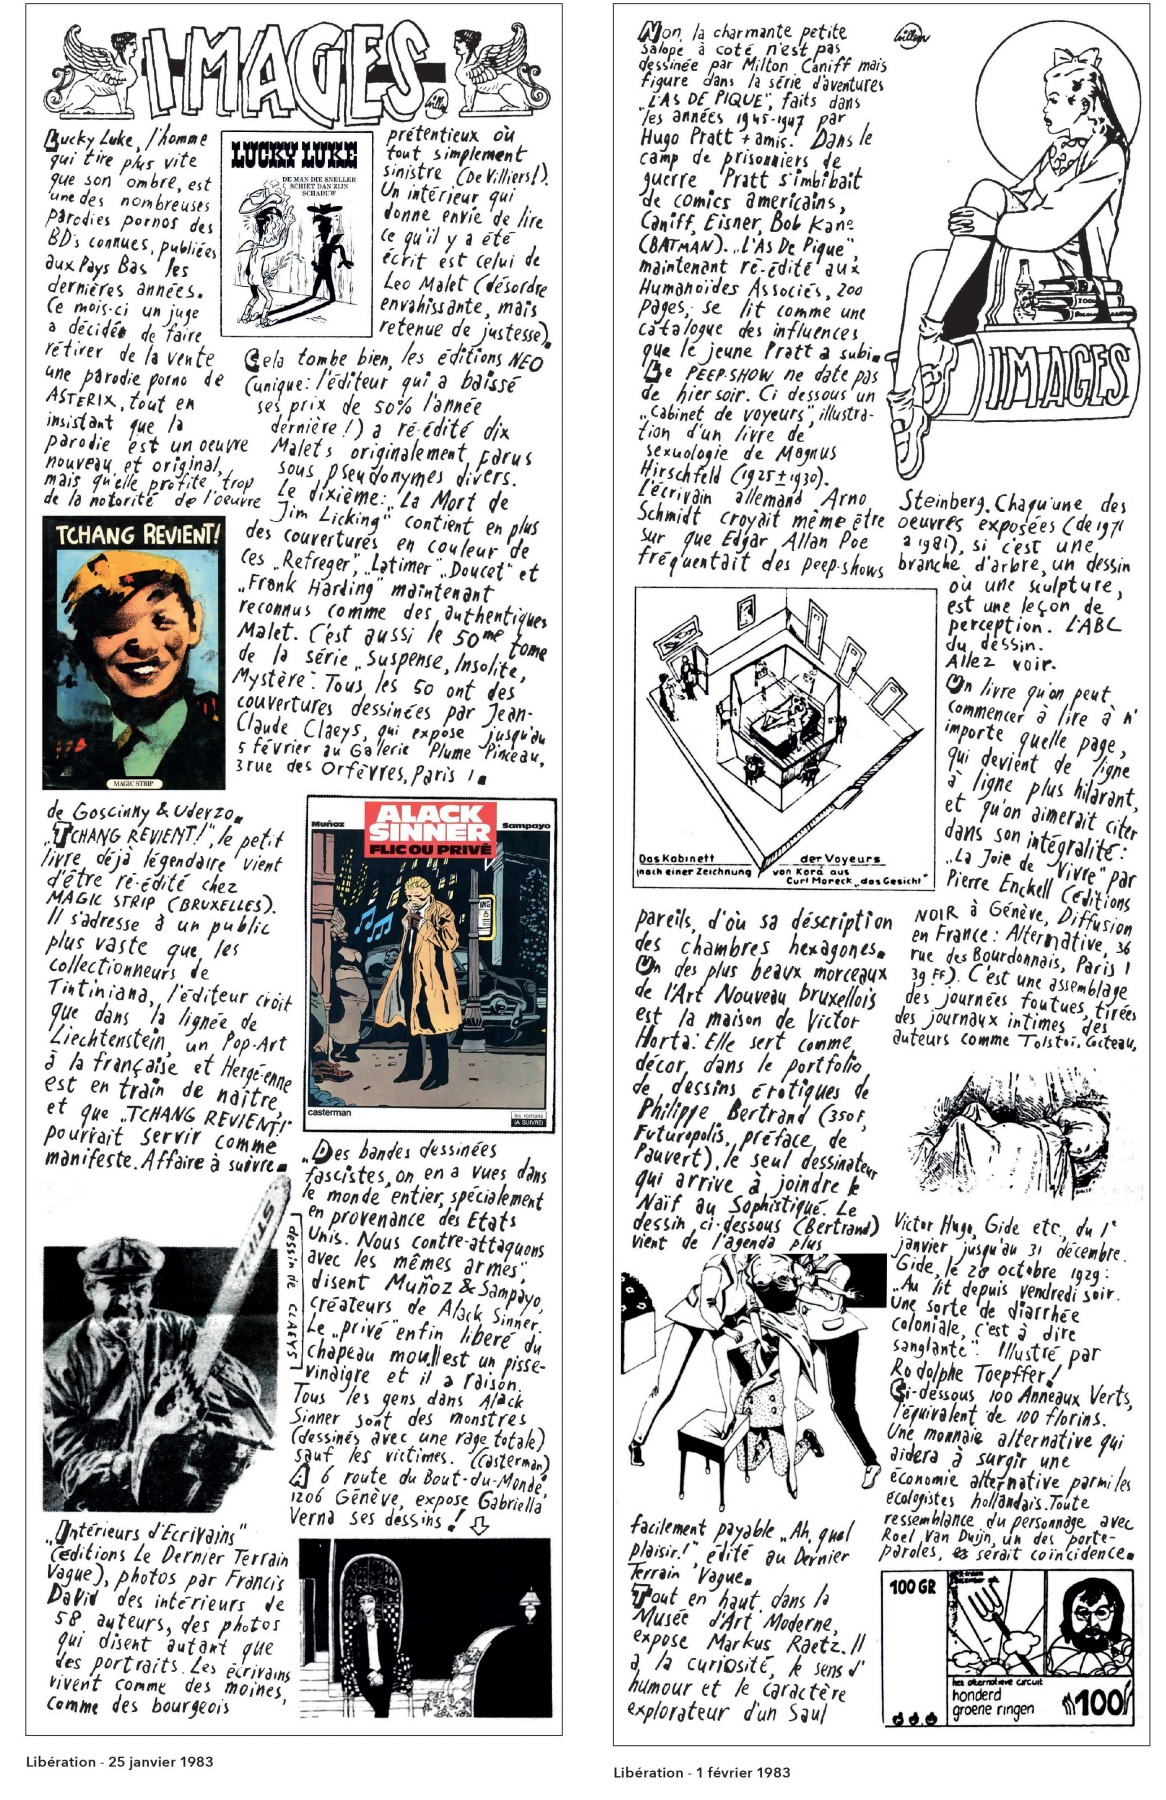 IMAGES
Willem
Lucky Luke, l'homme
qui tire plus vite
que son ombre, est
une des nombreuses
parodies pornos des
BD's connues, publiées
aux Pays Bas les
dernières années.
Ce mois-ci un juge
a décidé de faire
rétirer de la vente
une parodie porno de
ASTERIX, tout en
insistant que la
parodie est un oeuvre
nouveau et original,
mais qu'elle profite trop
de la notorité de l'oeuvre
LUCKY LUKE
DE MAN DIE SNELLER
SCHIET DAN ZIJN
SCHADUW
TCHANG REVIENT!
MAGIC STRIP
de Goscinny & Uderzo.
„TCHANG REVIENT!", le petit
livre déjà légendaire vient
d'être ré-édité chez
MAGIC STRIP (BRUXELLES).
Il s'adresse à un public
plus vaste que les
collectionneurs de
Tintiniana, l'éditeur croit
que dans la lignée de
Liechtenstein, un Pop-Art
à la française et Hergé-enne
est en train de naître,
et que „TCHANG REVIENT!"
pourrait servir comme
manifeste. Affaire à suivre.
STIHL
dessin de CLAEYS
„Intérieurs d'Ecrivains"
(éditions Le Dernier Terrain
Vague), photos par Francis
David des intérieurs de
58 auteurs, des photos
qui disent autant que
des portraits. Les écrivains
vivent comme des moines,
comme des bourgeois
prétentieux où
tout simplement
sinistre (De Villiers!).
Un intérieur qui
donne envie de lire
ce qu'il y a été
écrit est celui de
Leo Malet (désordre
envahissante, mais
retenue de justesse).
Cela tombe bien, les éditions NEO
(unique: l'éditeur qui a baissé
ses prix de 50% l'année
dernière!) a ré-édité dix
Malets originalement parus
sous pseudonymes divers.
Le dixième: „La Mort de
Jim Licking" contient en plus
des couvertures en couleur de
ces „Refreger", „Latimer" „Doucet" et
„Frank Harding" maintenant
reconnus comme des authentiques
Malet. C'est aussi le 50me tome
de la série „Suspense, Insolite,
Mystère". Tous les 50 ont des
couvertures dessinées par Jean-
Claude Claeys, qui expose jusqu'au
5 février au Galerie Plume Pinceau,
3 rue des Orfèvres, Paris 1.
Muñoz
ALACK
SINNER
FLIC OU PRIVÉ
Sampayo
casterman
les romans
(A SUIVRE)
„Des bandes dessinées
fascistes, on en a vues dans
le monde entier, spécialement
en provenance des Etats
Unis. Nous contre-attaquons
avec les mêmes armes",
disent Muñoz & Sampayo,
créateurs de Alack Sinner.
Le „privé" enfin liberé du
chapeau mou, est un pisse-
vinaigre et il a raison.
Tous les gens dans Alack
Sinner sont des monstres
(dessinés avec une rage totale)
sauf les victimes. (Casterman)
A 6 route du Bout-du-Monde,
1206 Génève, expose Gabriella
Verna ses dessins!
Libération - 25 janvier 1983
Non, la charmante petite
salope à coté n'est pas
dessinée par Milton Caniff mais
figure dans la série d'aventures
„L'AS DE PIQUE", faits dans
les années 1945-1947 par
Hugo Pratt + amis. Dans le
camp de prisonniers de
guerre Pratt s'imbibait
de comics americains,
Caniff, Eisner, Bob Kane
(BATMAN). „L'As De Pique",
maintenant ré-édité aux
Humanoïdes Associés, 200
pages, se lit comme une
catalogue des influences
que le jeune Pratt a subi.
Le PEEP-SHOW ne date pas
de hier soir. Ci dessous un
„Cabinet de voyeurs", illustra-
tion d'un livre de
sexuologie de Magnus
Hirschfeld (1925 ± 1930).
L'écrivain allemand Arno
Schmidt croyait même être
sur que Edgar Allan Poe
fréquentait des peep-shows
Willem
IMAGES
Das Kabinett der Voyeurs
(nach einer Zeichnung von Kora aus
Curt Moreck „das Gesicht"
pareils, d'où sa déscription
des chambres hexagones.
Un des plus beaux morceaux
de l'Art Nouveau bruxellois
est la maison de Victor
Horta. Elle sert comme
décor dans le portfolio
de dessins érotiques de
Philippe Bertrand (350F,
Futuropolis, préface de
Pauvert), le seul dessinateur
qui arrive à joindre le
Naïf au Sophistiqué. Le
dessin ci-dessous (Bertrand)
vient de l'agenda plus
facilement payable „Ah, quel
plaisir!", édité au Dernier
Terrain Vague.
Tout en haut dans la
Musée d'Art Moderne,
expose Markus Raetz. Il
a la curiosité, le sens d'
humour et le caractère
explorateur d'un Saul
Steinberg. Chaqu'une des
oeuvres exposées (de 1971
a 1981), si c'est une
branche d'arbre, un dessin
où une sculpture,
est une leçon de
perception. L'ABC
du dessin.
Allez voir.
Un livre qu'on peut
commencer à lire à n'
importe quelle page,
qui devient de ligne
à ligne plus hilarant,
et qu'on aimerait citer
dans son intégralité:
„La Joie de Vivre" par
Pierre Enckell (éditions
NOIR à Génève, Diffusion
en France: Alternative, 36
rue des Bourdonnais, Paris 1
39 FF). C'est une assemblage
des journées foutues, tirées
des journaux intimes des
auteurs comme Tolstoi, Cocteau,
Victor Hugo, Gide etc, du 1er
janvier jusqu'au 31 décembre.
Gide, le 28 octobre 1929:
„Au lit depuis vendredi soir.
Une sorte de diarrhée
coloniale, c'est à dire
sanglante". Illustré par
Rodolphe Toepffer!
Ci-dessous 100 Anneaux Verts,
l'équivalent de 100 florins.
Une monnaie alternative qui
aidera à surgir une
économie alternative parmi les
écologistes hollandais. Toute
ressemblance du personnage avec
Roel van Duijn, un des porte-
paroles, serait coïncidence.
100 GR
het alternatieve circuit
honderd
groene ringen
100
Libération - 1 février 1983